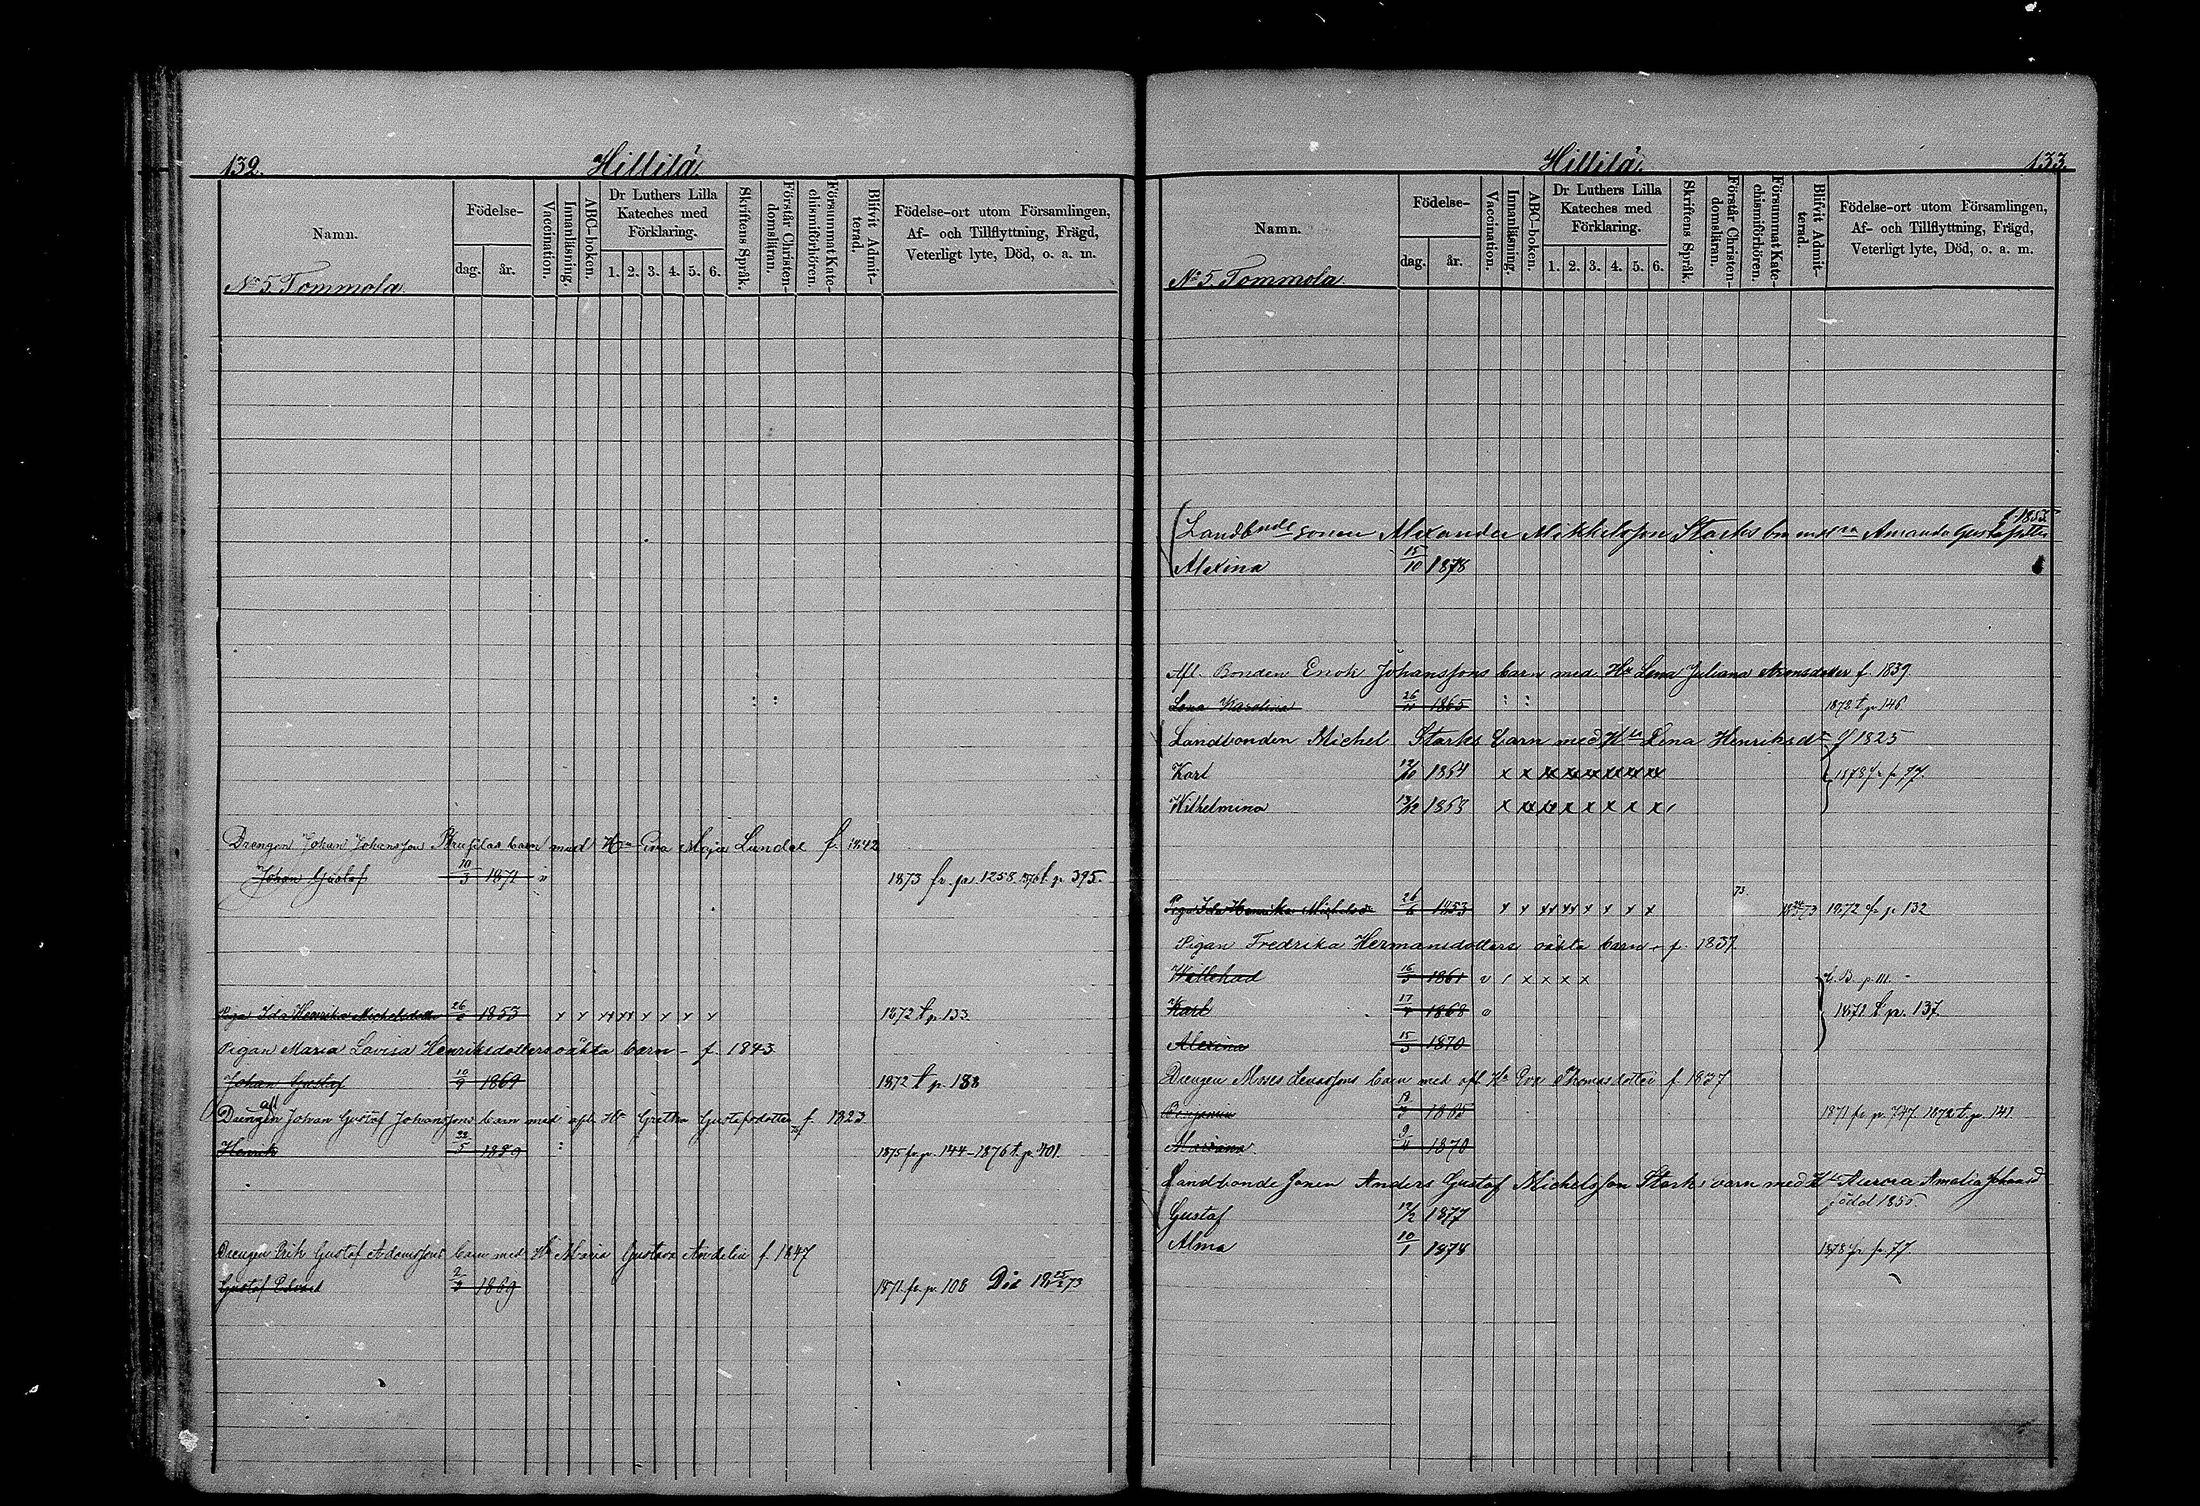 132. Hillilä
Namn. Födelse- dag. år. Vaccination. Innanläsning. ABC-boken. Dr Luthers Lilla Kateches med Förklaring. 1. 2. 3. 4. 5. 6. Skriftens Språk. Förstår Christendomsläran. Försummat Katechismiförhören. Blifvit Admitterad. Födelse-ort utom Församlingen, Af- och Tillflyttning, Frägd, Veterligt lyte, Död, o. a. m.
No 5. Tommola.
Drengen Johan Johansson barn med Hru Eva Maja Lundal f. 1842
Johan Gustaf 10/3 1871 v 1873 fr. pa. 1258. 1876 t. p. 395.
Pigan Ida Henrika Michelsdotter 26/6 1853 x x xx xx x x x x 1872 t p. 133
Pigan Maria Lovisa Henriksdotters oäkta barn - f. 1843
Johan Gustaf 10/9 1869 1872 t p. 188
Drengen afl Johan Gustaf Johanssons barn med afl. Hu Gretha Gustafsdotter f. 1823
Henrik 5 1850 1875 fr. p. 144 - 1876 t. p. 401.
Drengen Erik Gustaf Adamssons barn med Hu Maria Gustava Andelin f. 1847
Gustaf Edvard 1869 1871. fr. p. 108 Död 18 73
133. Hillilä.
Namn. Födelse- dag. år. Vaccination. Innanläsning. ABC-boken. Dr Luthers Lilla Kateches med Förklaring. 1. 2. 3. 4. 5. 6. Skriftens Språk. Förstår Christendomsläran. Försummat Katechismiförhören. Blifvit Admitterad. Födelse-ort utom Församlingen, Af- och Tillflyttning, Frägd, Veterligt lyte, Död, o. a. m.
No 5. Tommola.
f. 1855
Landbondesonen Alexander Mikkelsson Starks bn med Amanda Gustafsdtr
Alexina 15/10 1878
Afl. Bonden Enok Johanssons barn med Hu Lena Juliana Aronsdotter f. 1839
Lena Karolina 26 1865 1872 t. p. 146
Landbonden Michel Starks barn med Hu Lena Henriksdr f 1825
Karl 12/10 1864 1878 fr p. 77.
Wilhelmina 1868
Pigan Ida Henrika Michelsdr 26/6 1853 x x xx xx x x x x 73 18 73 1872 fr p. 132
Pigan Fredrika Hermansdotters oäkta barn - f. 1837
Willehad 16 1861 v / x x x x K. B. p. 111 -
Karl 17 1868 1872 t p. 137
Alexina 15/3 1870
Drengen Moses barn med afl. Hu Eva Thomasdotter f 1837
Benjamin 3 1865 1871 fr. p. 747. 1872 t. p. 141.
Mariana 9 1870
Landbonde Sonen Anders Gustaf Michelsson Starks barn med Hu Aurora Amalia Johansd
född 1855
Gustaf 12/2 1877
Alma 10/1 1878 1878 fr p. 77